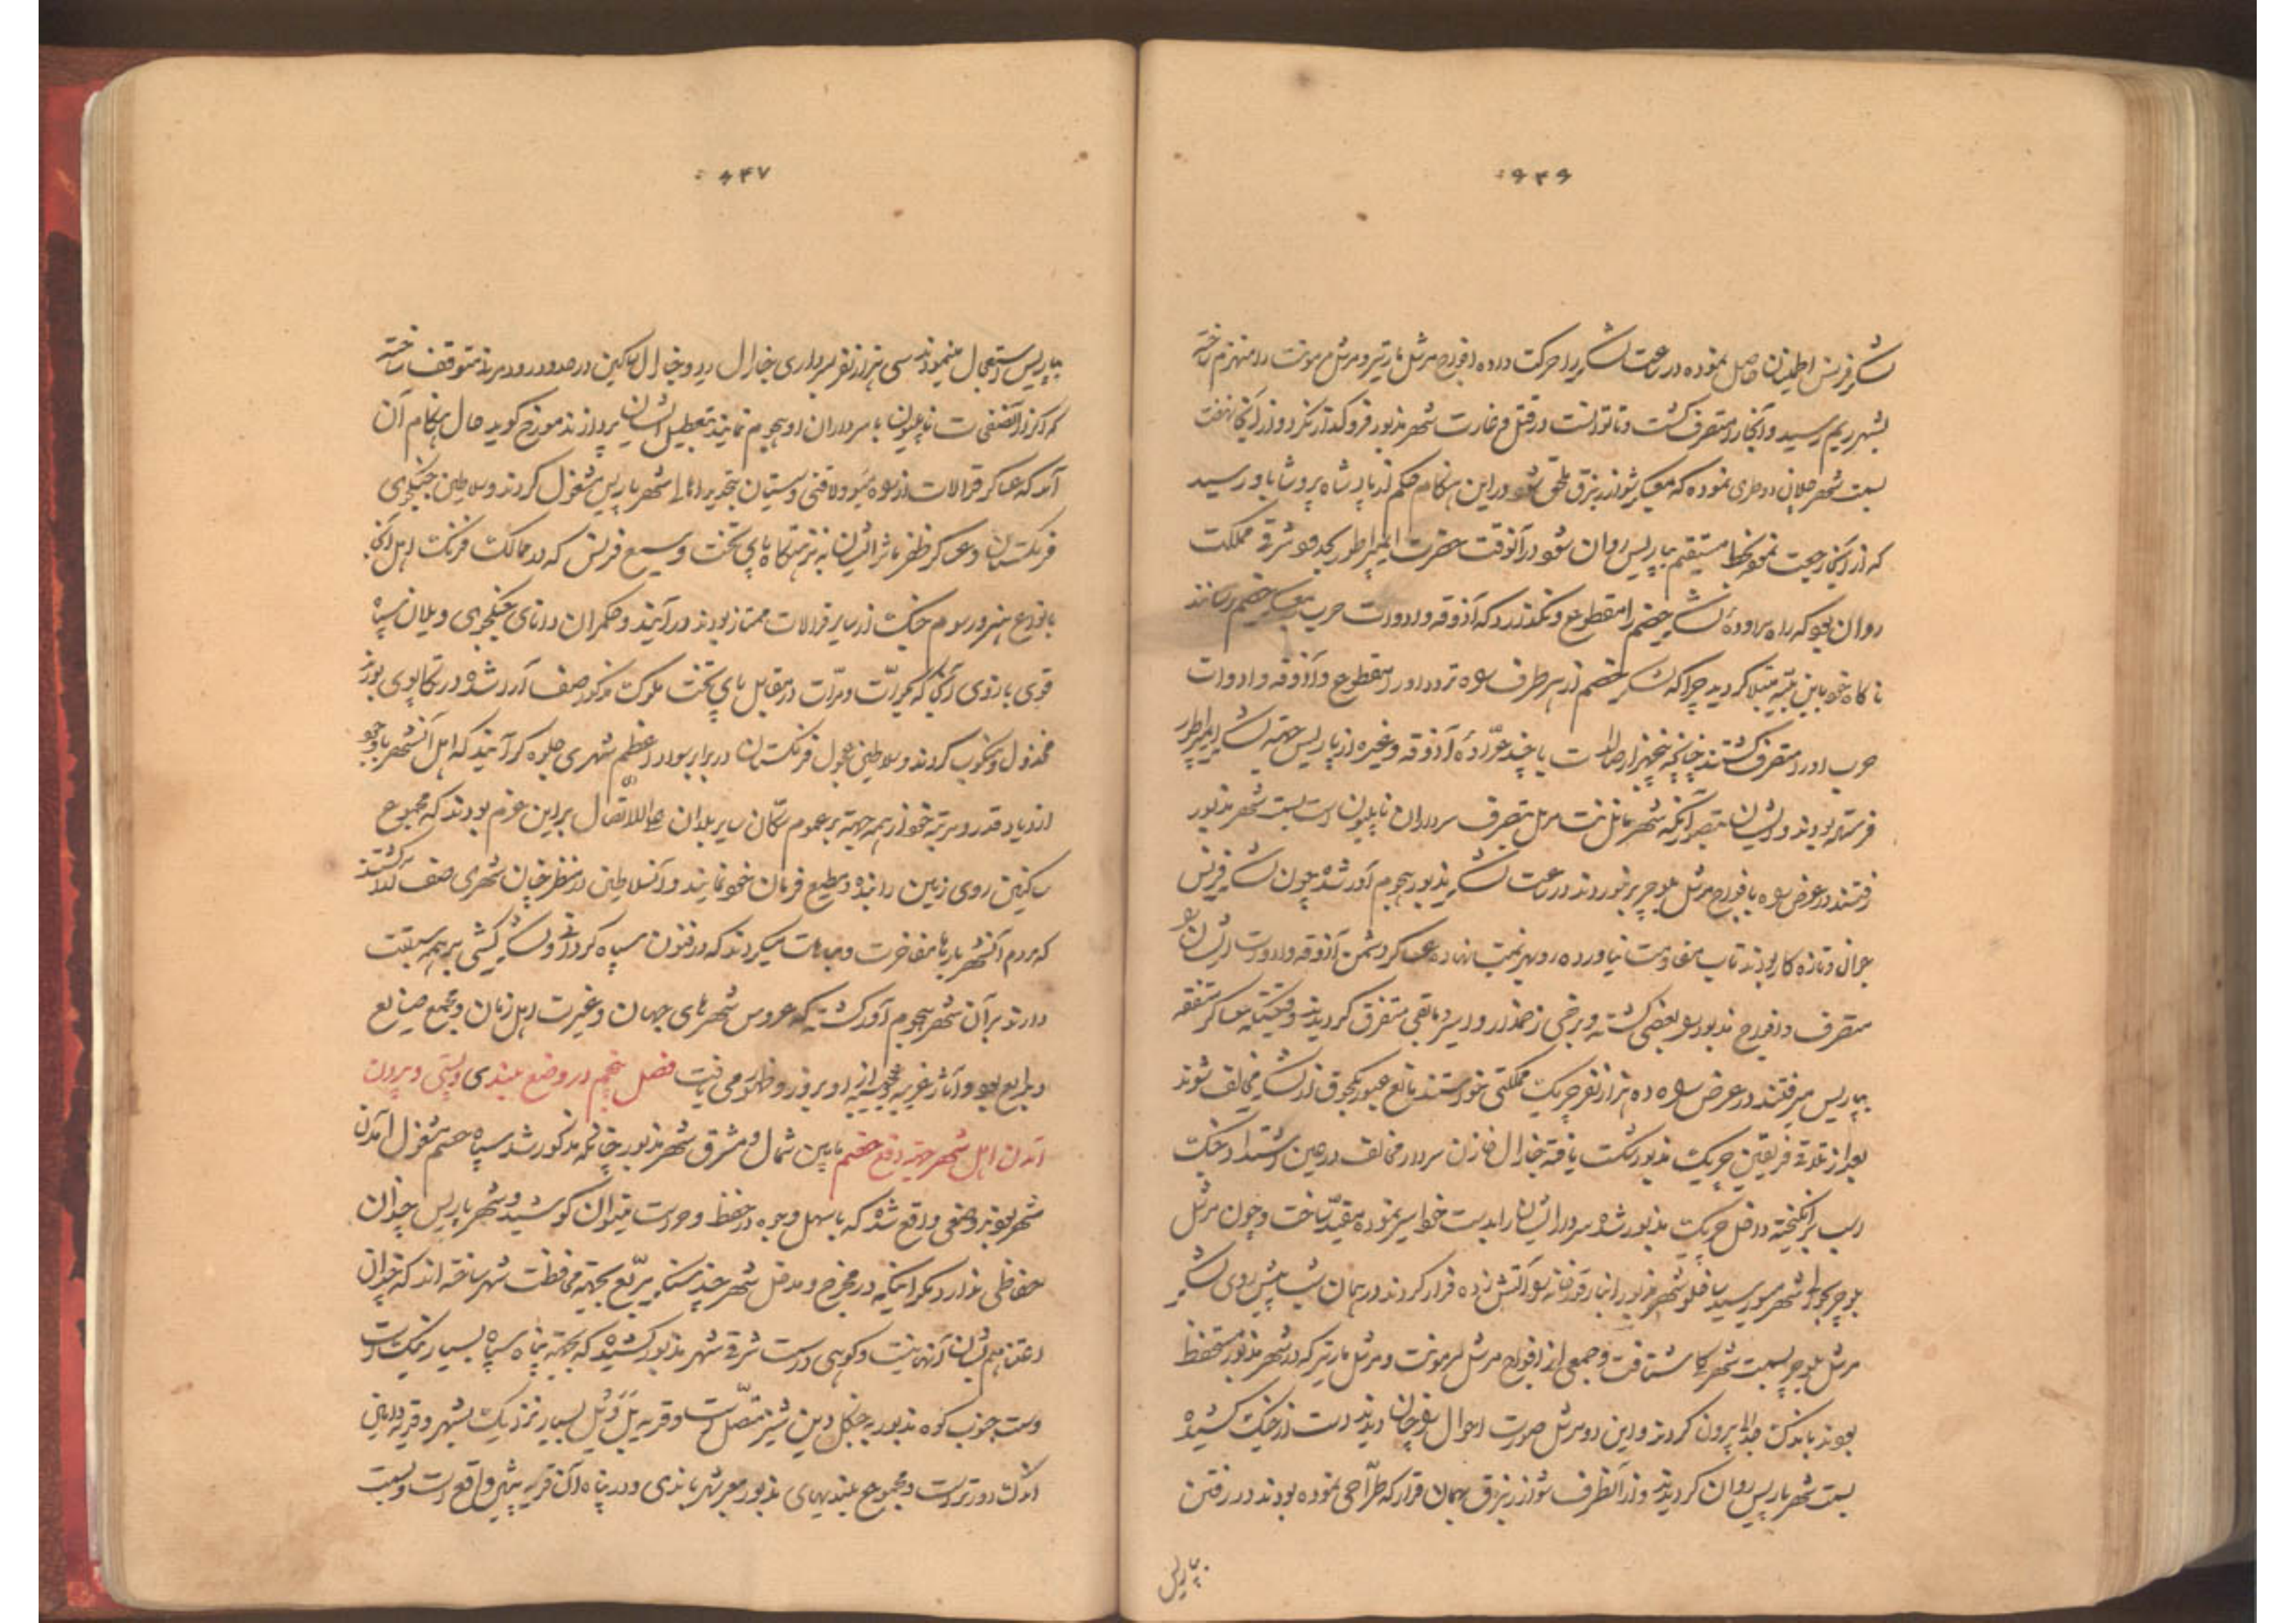 ۶۴۶
لشکر فرنس اطمینان حاصل نموده در ساعت لشکر را حرکت داده افواج مرشل مارتیر و مرشل مرمونت را منهزم ساخته
بشهر ریم رسید و آنجا را متصرف گشت و تا توانست در قتل و غارت شهر مذبور فروگذار نکرد و از آنجا نهضت
بسمت شهر جلان را طی نموده که بمعسکر شوارزنبرق ملحق شود در این هنگام حکم از پادشاه پروشا باو رسید
که از آنجا رجعت نموده بخط مستقیم بپاریس روان شود در آنوقت حضرت ایمپراطور بحدود شرقی مملکت
روان بود که راه مراوده لشکر خصم را مقطوع و نگذارد که آذوقه و ادوات حرب بمعسکر خصم رسانند
ناگاه خود باین بلیه مبتلا گردید چرا که لشکر خصم از هر طرف راه تردد او را مقطوع و آذوقه و ادوات
حرب او را متصرف گشتند چنانچه پنجهزار صالدات با چند عرّاده آذوقه و غیره از پاریس جهته لشکر ایمپراطور
فرستاده بودند و ایشان بتصور آنکه شهر مانت مرل بتصرف سرداران ناپلیون است بسمت شهر مذبور
رفتند در عرض راه با افواج مرشل بلوچر برخوردند در ساعت لشکر مذبور هجوم آور شده چون لشکر فرنس
جوان و تازه کار بودند تاب مقاومت نیاورده رو بهزیمت نهاده عساکر دشمن آذوقه و ادوات ایشان را
متصرف و افواج مذبور را بعضی کشته و برخی زخمدار و اسیر و مابقی متفرق گردیدند وقتیکه عساکر متفقه
بپاریس میرفتند در عرض راه ده هزار نفر چریک مملکتی خواستند مانع عبور یکجوق از لشکر مخالف شوند
بعد از تلاقی فریقین چریک مذبور شکست یافته جنارال فازن سردار مخالف در عین اشتداد جنگ
اسب برانگیخته داخل چریک مذبور شده سردار ایشان را بدست خود اسیر نموده مقیّد ساخت و چون مرشل
بلوچر بحوالی شهر مو رسید ساخلو شهر مذبور انبار قورخانه را آتش زده فرار کردند در همان شب پیش روی لشکر
مرشل بلوچر بسمت شهر کلی شتافت و جمعی از افواج مرشل مرمونت و مرشل مارتیر که در شهر مذبور مستحفظ
بودند باندک جدالی بیرون کردند و این دو مرشل صورت احوال را چنان دیدند دست از جنگ کشیده
بسمت شهر پاریس روان گردیدند و از آنطرف شوارزنبرق بهمان قرار که طرّاحی نموده بودند در رفتن
بپاریس
۶۴۷
بپاریس استعجال مینمودند سی هزار نفر بسرداری جنارال و جنارال ساکین در حدود رود مرند متوقف ساخته
که اگر از آنصفحات ناپلیون با سرداران او هجوم نمایند بتعطیل ایشان پردازند مورخ گوید حال هنگام آن
آمد که عساکر قرالات از راه سو ولافنی وستیان بتحدید اهالی شهر پاریس مشغول گردند و سلاطین جنگجوی
فرنگستان و عساکر ظفر ماثر ایشان به نزهتگاه پای تخت وسیع فرنس که در ممالک فرنگ اهل آنجا
بانواع هنر و رسوم جنگ از سایر قرالات ممتاز بودند در آیند و حکمران دانای جنگجوی و یلان سپاه
قوی بازوی آنجا که بجرأت و مرّات در مقابل پای تخت ملوک مذکور صف آرا شده در تکاپوی بودند
مخذول و منکوب گردند و سلاطین عجول فرنگستان در برابر سواد اعظم شهری جلوه گر آیند که اهل آنشهر با وجود
ازدیاد قدر و مرتبه خود از همه جهته بر عموم سکّان سایر بلدان علی الاتّصال بر این عزم بودند که مجموع
ساکنین روی زمین را بنده و مطیع فرمان خود نمایند و آنسلاطین در منظر چنان شهری صف آرا گشتند
که مردم آنشهر بارها مفاخرت و مباهات میکردند که در فنون سپاه گردانی و لشکرکشی بر همه سبقت
دارند بر آن شهر هجوم آور گشته که عروس شهرهای جهان و غیرت اهل زمان و مجمع صنایع
و بدایع بود و آثار غریبه و عجیبه از او بروز و ظهور می یافت فصل پنجم در وضع بلندی و پستی و بیرون
آمدن اهل شهر جهته دفع خصم مابین شمال و مشرق شهر مذبور چنانکه مذکور شد سپاه خصم مشغول آمدن
شهر بودند وضعی واقع شده که باسهل وجوه در حفظ و حراست میتوان کوشید و شهر پاریس چندان
حفاظی ندارد مگر اینکه در مخرج و مدخل شهر چند سنگر مربّع بجهته محافظت شهر ساخته اند که چندان
اعتنا هم بشان آنها نیست و کوهی در سمت شرقی شهر مذبور کشیده که بجهته پناه سپاه بسیار نیک است
وسمت جنوب کوه مذبور به جنگل وین شینز متّصل است و قریه بَل ویل بسیار نزدیک بشهر و قریه رمانی
اندک دورتر است و مجموع بلندیهای مذبور مع شهر باندی و در پناه آن قریه پنتین واقع است و بسمت